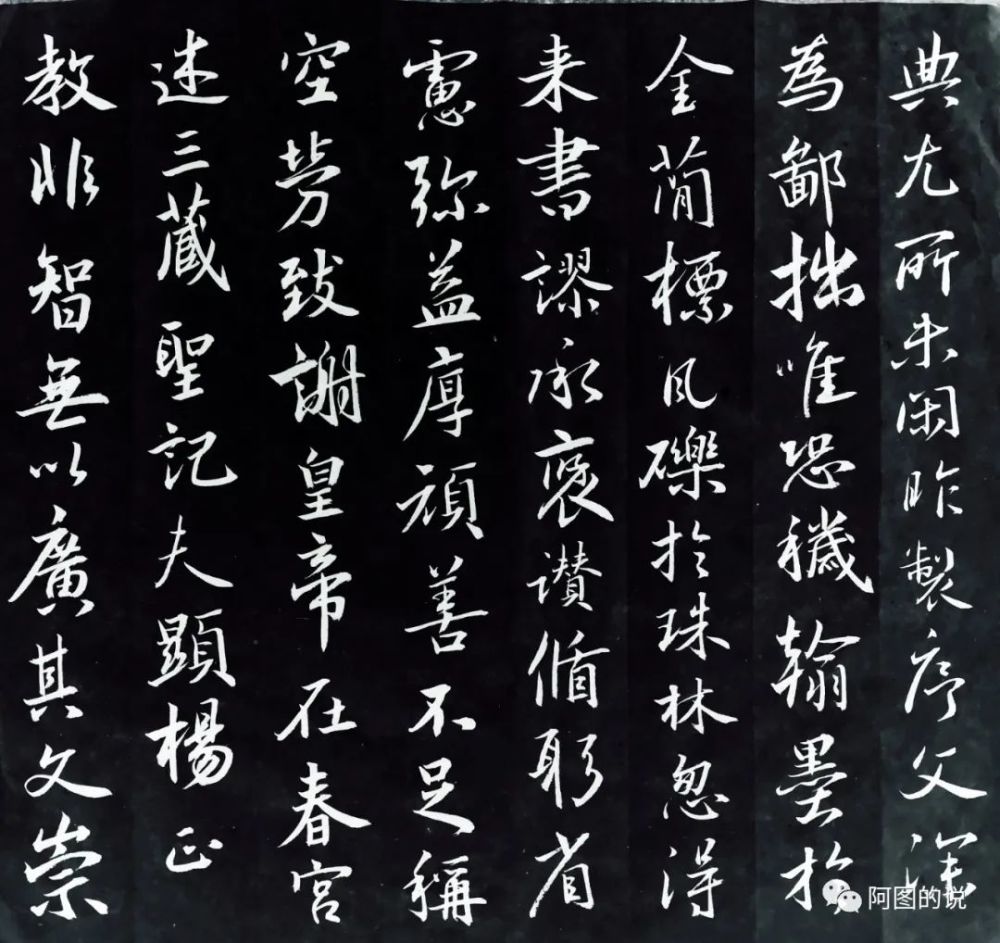 典尤所未閑昨製序文深
為鄙拙唯恐穢翰墨於
金簡標瓦礫於珠林忽得
来書謬承褒讃循躬省
慮弥益厚顔善不足稱
空勞致謝皇帝在春宮
述三藏聖記夫顯楊正
教非智無以廣其文崇
阿图的说